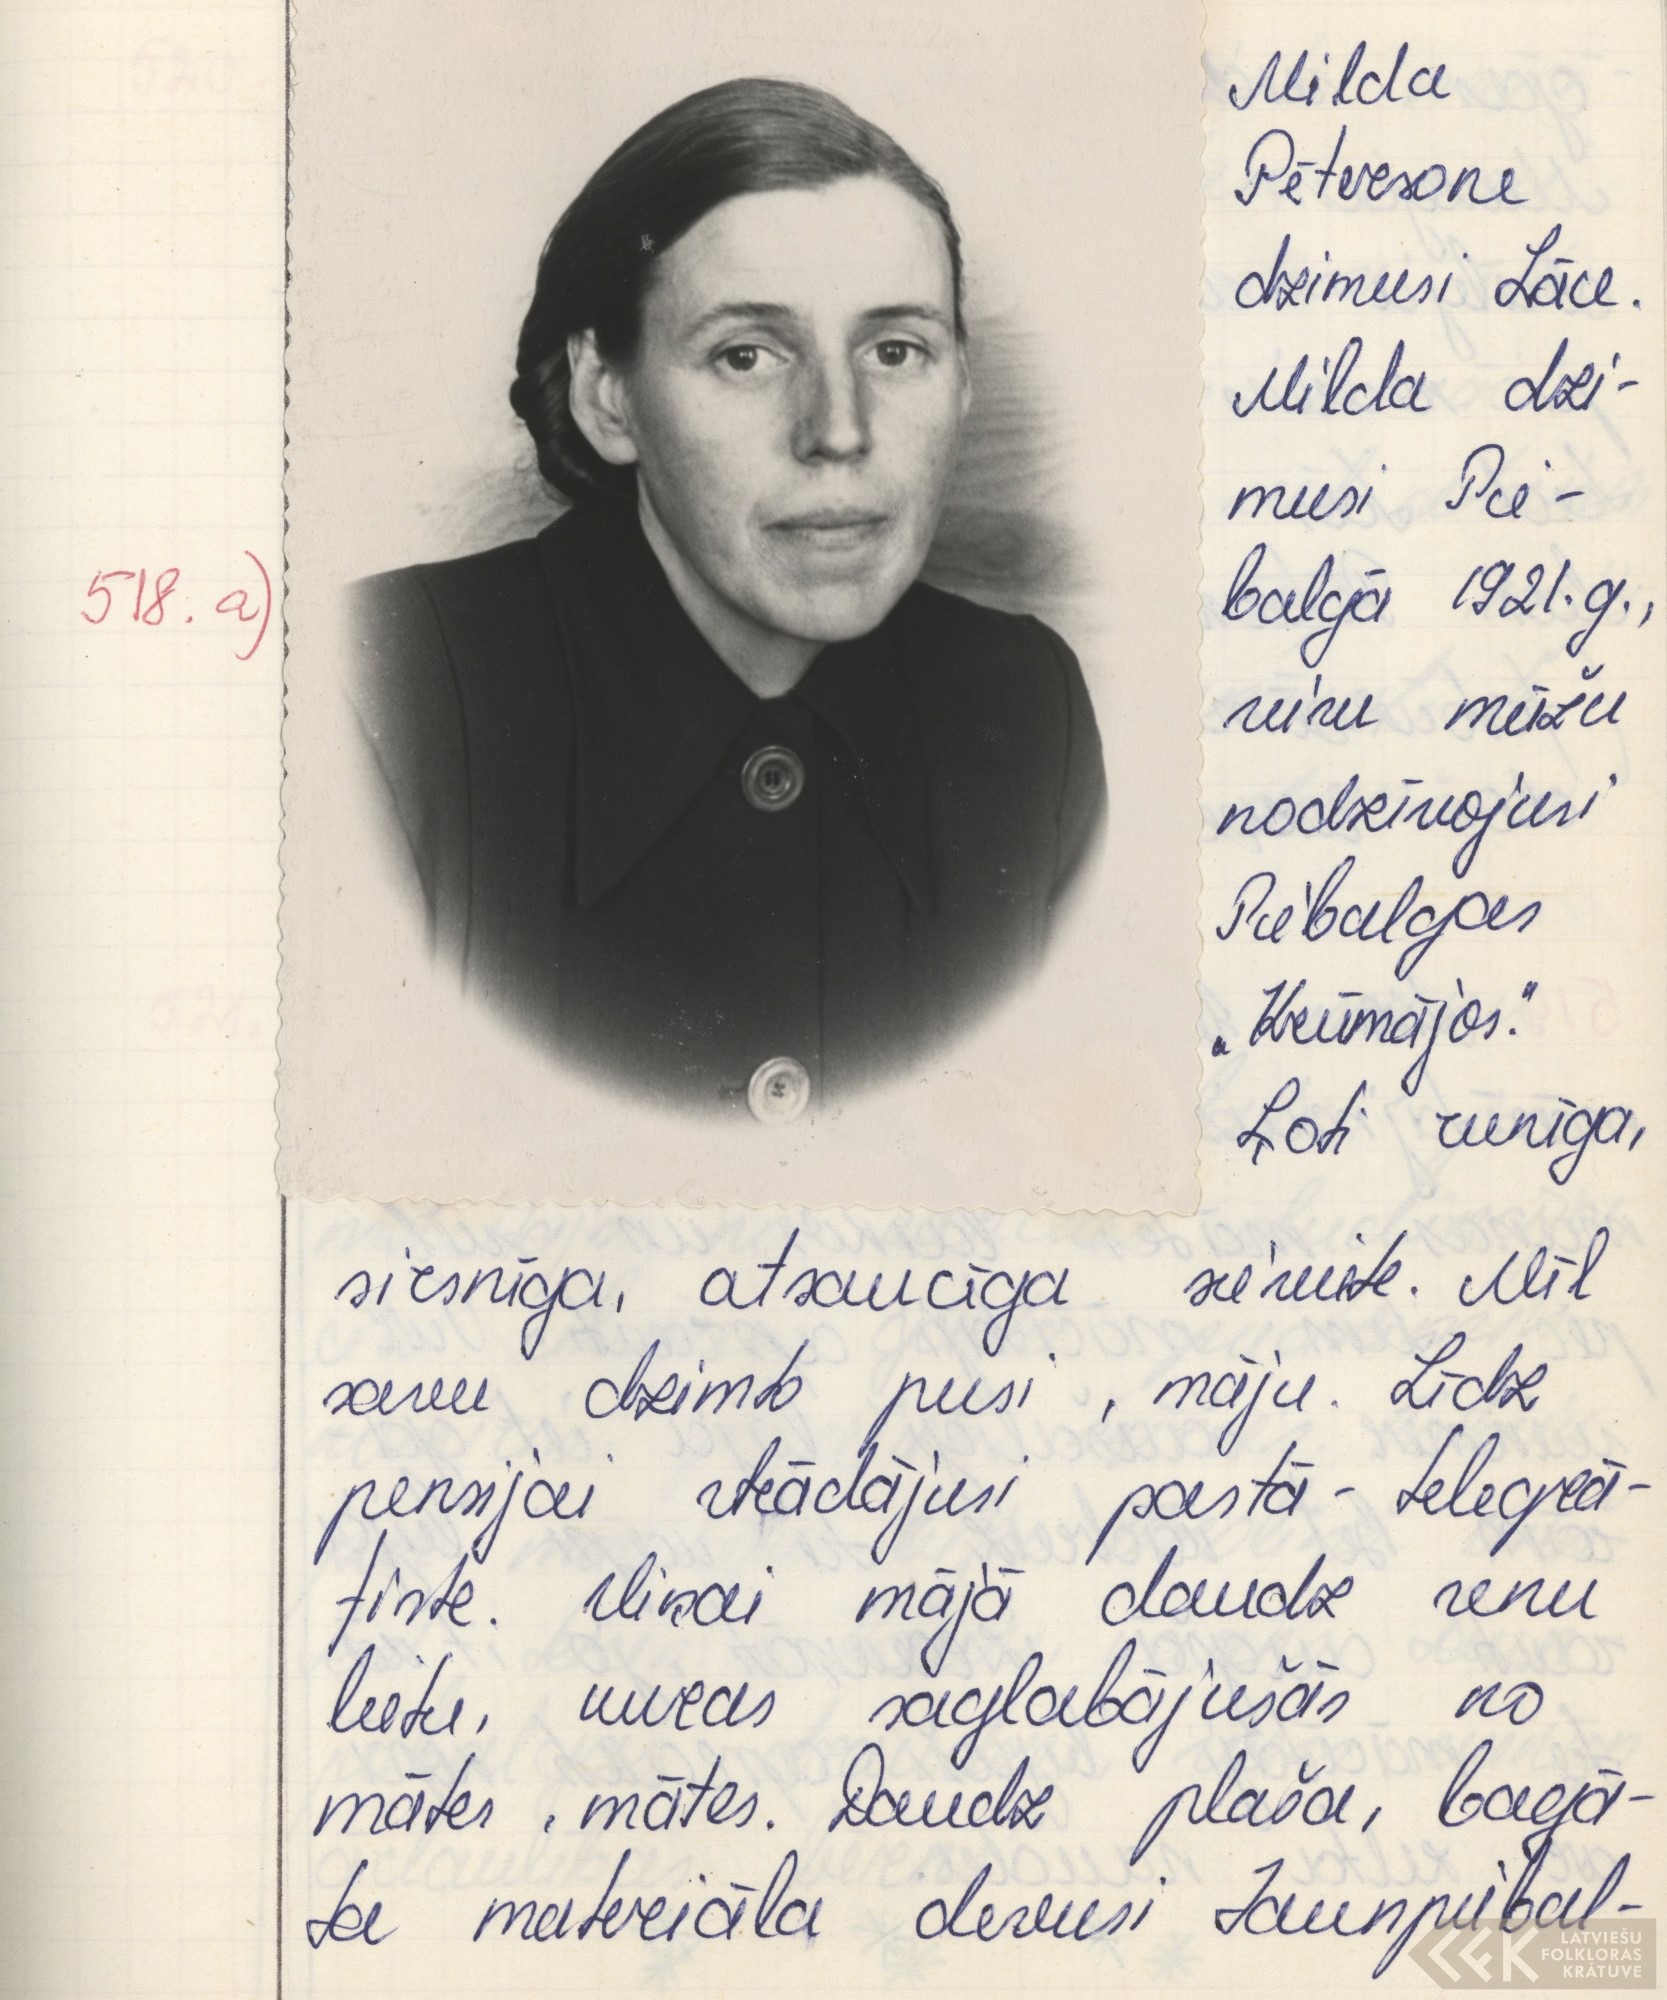 Milda
Pētersone
dzimusi Lāce.
Milda dzi-
musi Pie-
balgā 1921.g.,
visu mūžu
nodzīvojusi
Piebalgas
„Krūmājos."
518. a)
Ļoti runīga,
sirsnīga, atsaucīga sieviete. Mīl
savu dzimto pusi, māju. Līdz
pensijai strādājusi pastā - telegrā-
fiste. Viņai mājā daudz senu
lietu, kuras saglabājušās no
mātes, mātes. Daudz plaša, bagā-
ta materiāla devusi Jaunpiebal-
LATVIEŠU
FOLKLORAS
KRĀTUVE